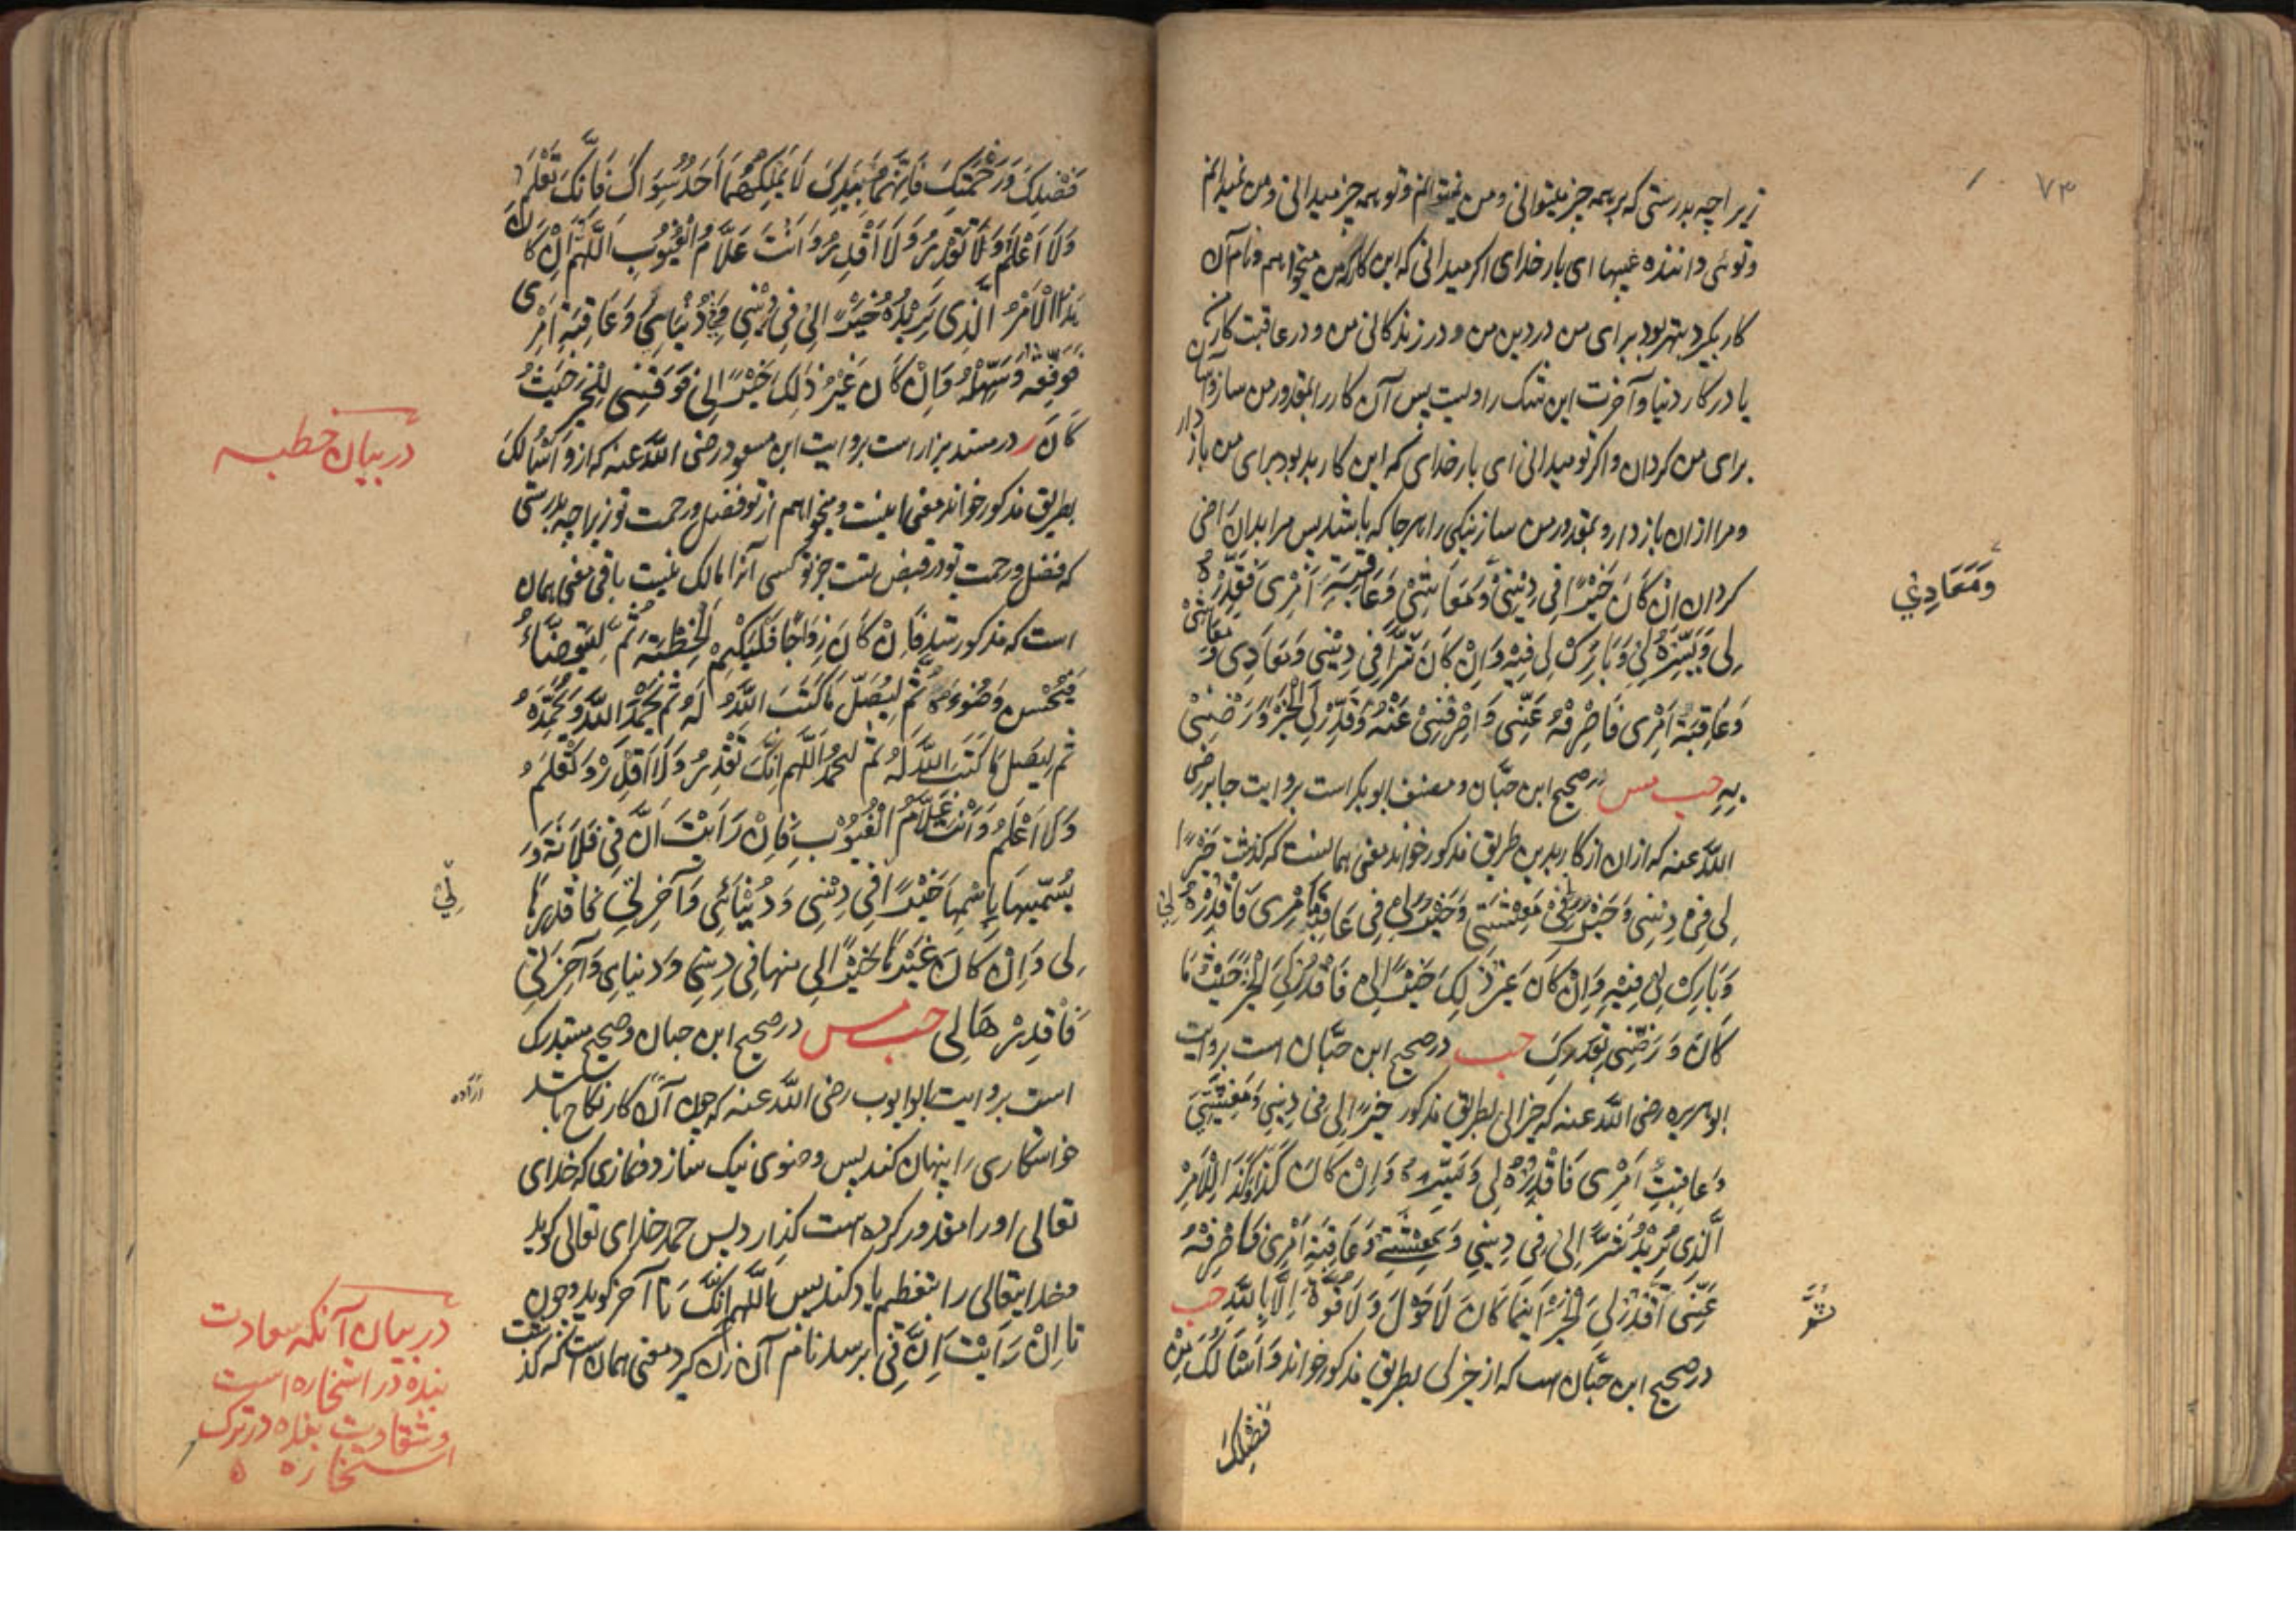 ۷۳
زیراچه بدرستی که بر همه چیز میتوانی و من نمیتوانم و تو همه چیز میدانی و من نمیدانم
و توئی داننده غیبها ای بار خدای اکر میدانی که این کار که من میخواهم و نام آن
کار بکیرد بهتر بود برای من در دین من و در زندکانی من و در عاقبت کار من
یا در کار دنیا و آخرت این شک راویست پس آن کار را بمقدور من ساز و آسان
برای من کردان و اکر تو میدانی ای بار خدای که این کار بد بود برای من باز دار
و مرا ازان باز دار و بمقدور من ساز نیکی را هر جا که باشد پس مرا بدان راضی
کردان اِنْ كَانَ خَيْرًا فِي دِيْنِيْ وَمَعَاشِيْ وَعَاقِبَةِ اَمْرِى فَقَدِّرْهُ
وَمَعَادِيْ
لِى وَيَسِّرْهُ لِيْ وَبَارِكْ لِى فِيْهِ وَاِنْ كَانَ شَرًّا فِي دِيْنِي وَمَعَادِى وَمَعَاشِىْ
وَعَاقِبَةِ اَمْرِى فَاصْرِفْهُ عَنِّى وَاصْرِفْنِىْ عَنْهُ وَقَدِّرْ لِيَ الْخَيْرَ وَرَضِّنِىْ
بِهِ حب مس در صحیح ابن حبّان و مصنف ابو بکر است بروایت جابر رضی
اللّٰه عنه که ازان از کار بدین طریق مذکور خواند معنی همانست که کذشت خَيْرًا
لِى فِى دِيْنِى وَخَيْرًا لِيْ فِيْ مَعِيْشَتِى وَخَيْرًا لِى فِى عَاقِبَةِ اَمْرِى فَاقْدِرْهُ لِيْ
وَبَارِكْ لِى فِيْهِ وَاِنْ كَانَ غَيْرُ ذٰلِكَ خَيْرًا لِى فَاقْدُرْ لِيَ الْخَيْرَ حَيْثُ مَا
كَانَ وَرَضِّنِى بِقَدَرِكَ حب در صحیح ابن حبّان است بروایت
ابو هریره رضی اللّٰه عنه که خیرا لی بطریق مذکور خَيْرًا لِى فِى دِيْنِي وَمَعِيْشَتِيْ
وَعَاقِبَتِ اَمْرِى فَاقْدُرْهُ لِى وَيَسِّرْهُ وَاِنْ كَانَ كَذَا وَكَذَا لِلْاَمْرِ
الَّذِى يُرِيْدُ شَرًّا لِىْ فِى دِيْنِي وَمَعِيْشَتِيْ وَعَاقِبَةِ اَمْرِى فَاصْرِفْهُ
عَنِّى ثُمَّ اقْدُرْ لِيَ الْخَيْرَ اَيْنَمَا كَانَ لَا حَوْلَ وَلَا قُوَّةَ اِلَّا بِاللّٰهِ حب
در صحیح ابن حبّان است که از خیر لی بطریق مذکور خواند وَاَسْئَالُكَ مِنْ
فَضْلِكَ
فَضْلِكَ وَرَحْمَتِكَ فَاِنَّهُمَا بِيَدِكَ لَا يَمْلِكُهُمَا اَحَدٌ سِوَاكَ فَاِنَّكَ تَعْلَمُ
وَلَا اَعْلَمُ وَلَا تَقْدِرُ وَلَا اَقْدِرُ وَاَنْتَ عَلَّامُ الْغُيُوْبِ اَللّٰهُمَّ اِنْ كَانَ
هٰذَا الْاَمْرُ الَّذِى يُرِيْدُهُ خَيْرًا لِىْ فِى دِيْنِي وَفِيْ دُنْيَاىَ وَعَاقِبَةِ اَمْرِى
فَوَفِّقْهُ وَسَهِّلْهُ وَاِنْ كَانَ غَيْرُ ذٰلِكَ خَيْرًا لِى فَوَفِّقْنِى لِلْخَيْرِ حَيْثُ
كَانَ ر در مسند بزار است بروایت ابن مسعود رضی اللّٰه عنه که از وَاَسْئَالُكَ
در بیان خطبه
بطریق مذکور خواند معنی اینست و میخواهم از تو فضل و رحمت تو زیراچه بدرستی
که فضل و رحمت تو در قبض تست جز تو کسی آنرا مالک نیست باقی معنی همان
است که مذکور شد فَاِنْ كَانَ زِوَاجًا فَلْيَكْتُمْ الْخِطْبَةَ ثُمَّ لِيَتَوَضَّاءْ
فَيُحْسِن وُضُوْءَهُ ثُمَّ لِيُصَلِّ مَا كَتَبَ اللّٰهُ لَهُ ثُمَّ يَحْمَدُ اللّٰهَ وَيُمَجِّدُهُ
ثم لِيُصَلِّ مَا كَتَبَ اللّٰهُ لَهُ ثُمَّ ليحمد اَللّٰهُمَّ اِنَّكَ تَقْدِرُ وَلَا اَقْدِرُ وَتَعْلَمُ
وَلَا اَعْلَمُ وَاَنْتَ عَلَّامُ الْغُيُوْبِ فَاِنْ رَاَيْتَ اَنَّ فِيْ فُلَانَةٍ وَ
يُسَمِّيهَا بِاسْمِهَا خَيْرًا فِى دِيْنِى وَدُنْيَائِى وَآخِرَتِي فَاقْدِرْهَا
لِيْ
لِى وَاِنْ كَانَ غَيْرُهَا خَيْرًا لِى منها فى دِيْنِي وَدنياى وَآخِرَتِى
فَاقْدِرْهَا لِى حب مس در صحیح ابن حبان و صحیح مستدرک
است بروایت ابو ایوب رضی اللّٰه عنه که چون آن کار نکاح باشد
خواستکاری را پنهان کند پس وضوی نیک سازد و نمازی که خدای
تعالی او را مقدور کرده است کذارد پس حمد خدای تعالی کوید
و خدایتعالی را بتعظیم یاد کند پس اَللّٰهُمَّ اِنَّكَ تا آخر کوید و چون
تا اِنْ رَاَيْتَ اَنَّ فِيْ برسد نام آن زن کیرد معنی همان است که کذشت
در بیان آنکه سعادت
بنده در استخاره است
و شقاوت بنده در ترک
استخاره ه